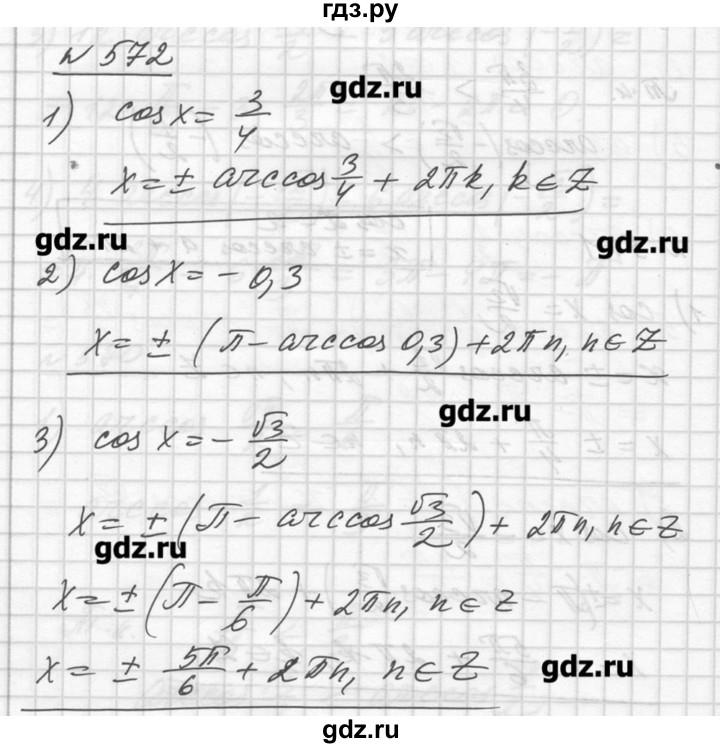 гдз.ру
№ 572
gdz.ru
1) cos x = 3/4
x = ± arccos 3/4 + 2πk, k ∈ Z
gdz.ru
gdz.ru
2) cos x = - 0,3
x = ± (π - arccos 0,3) + 2πn, n ∈ Z
gdz.ru
3) cos x = - √3/2
x = ± (π - arccos √3/2) + 2πn, n ∈ Z
gdz.ru
x = ± (π - π/6) + 2πn, n ∈ Z
x = ± 5π/6 + 2πn, n ∈ Z
gdz.ru
gdz.ru